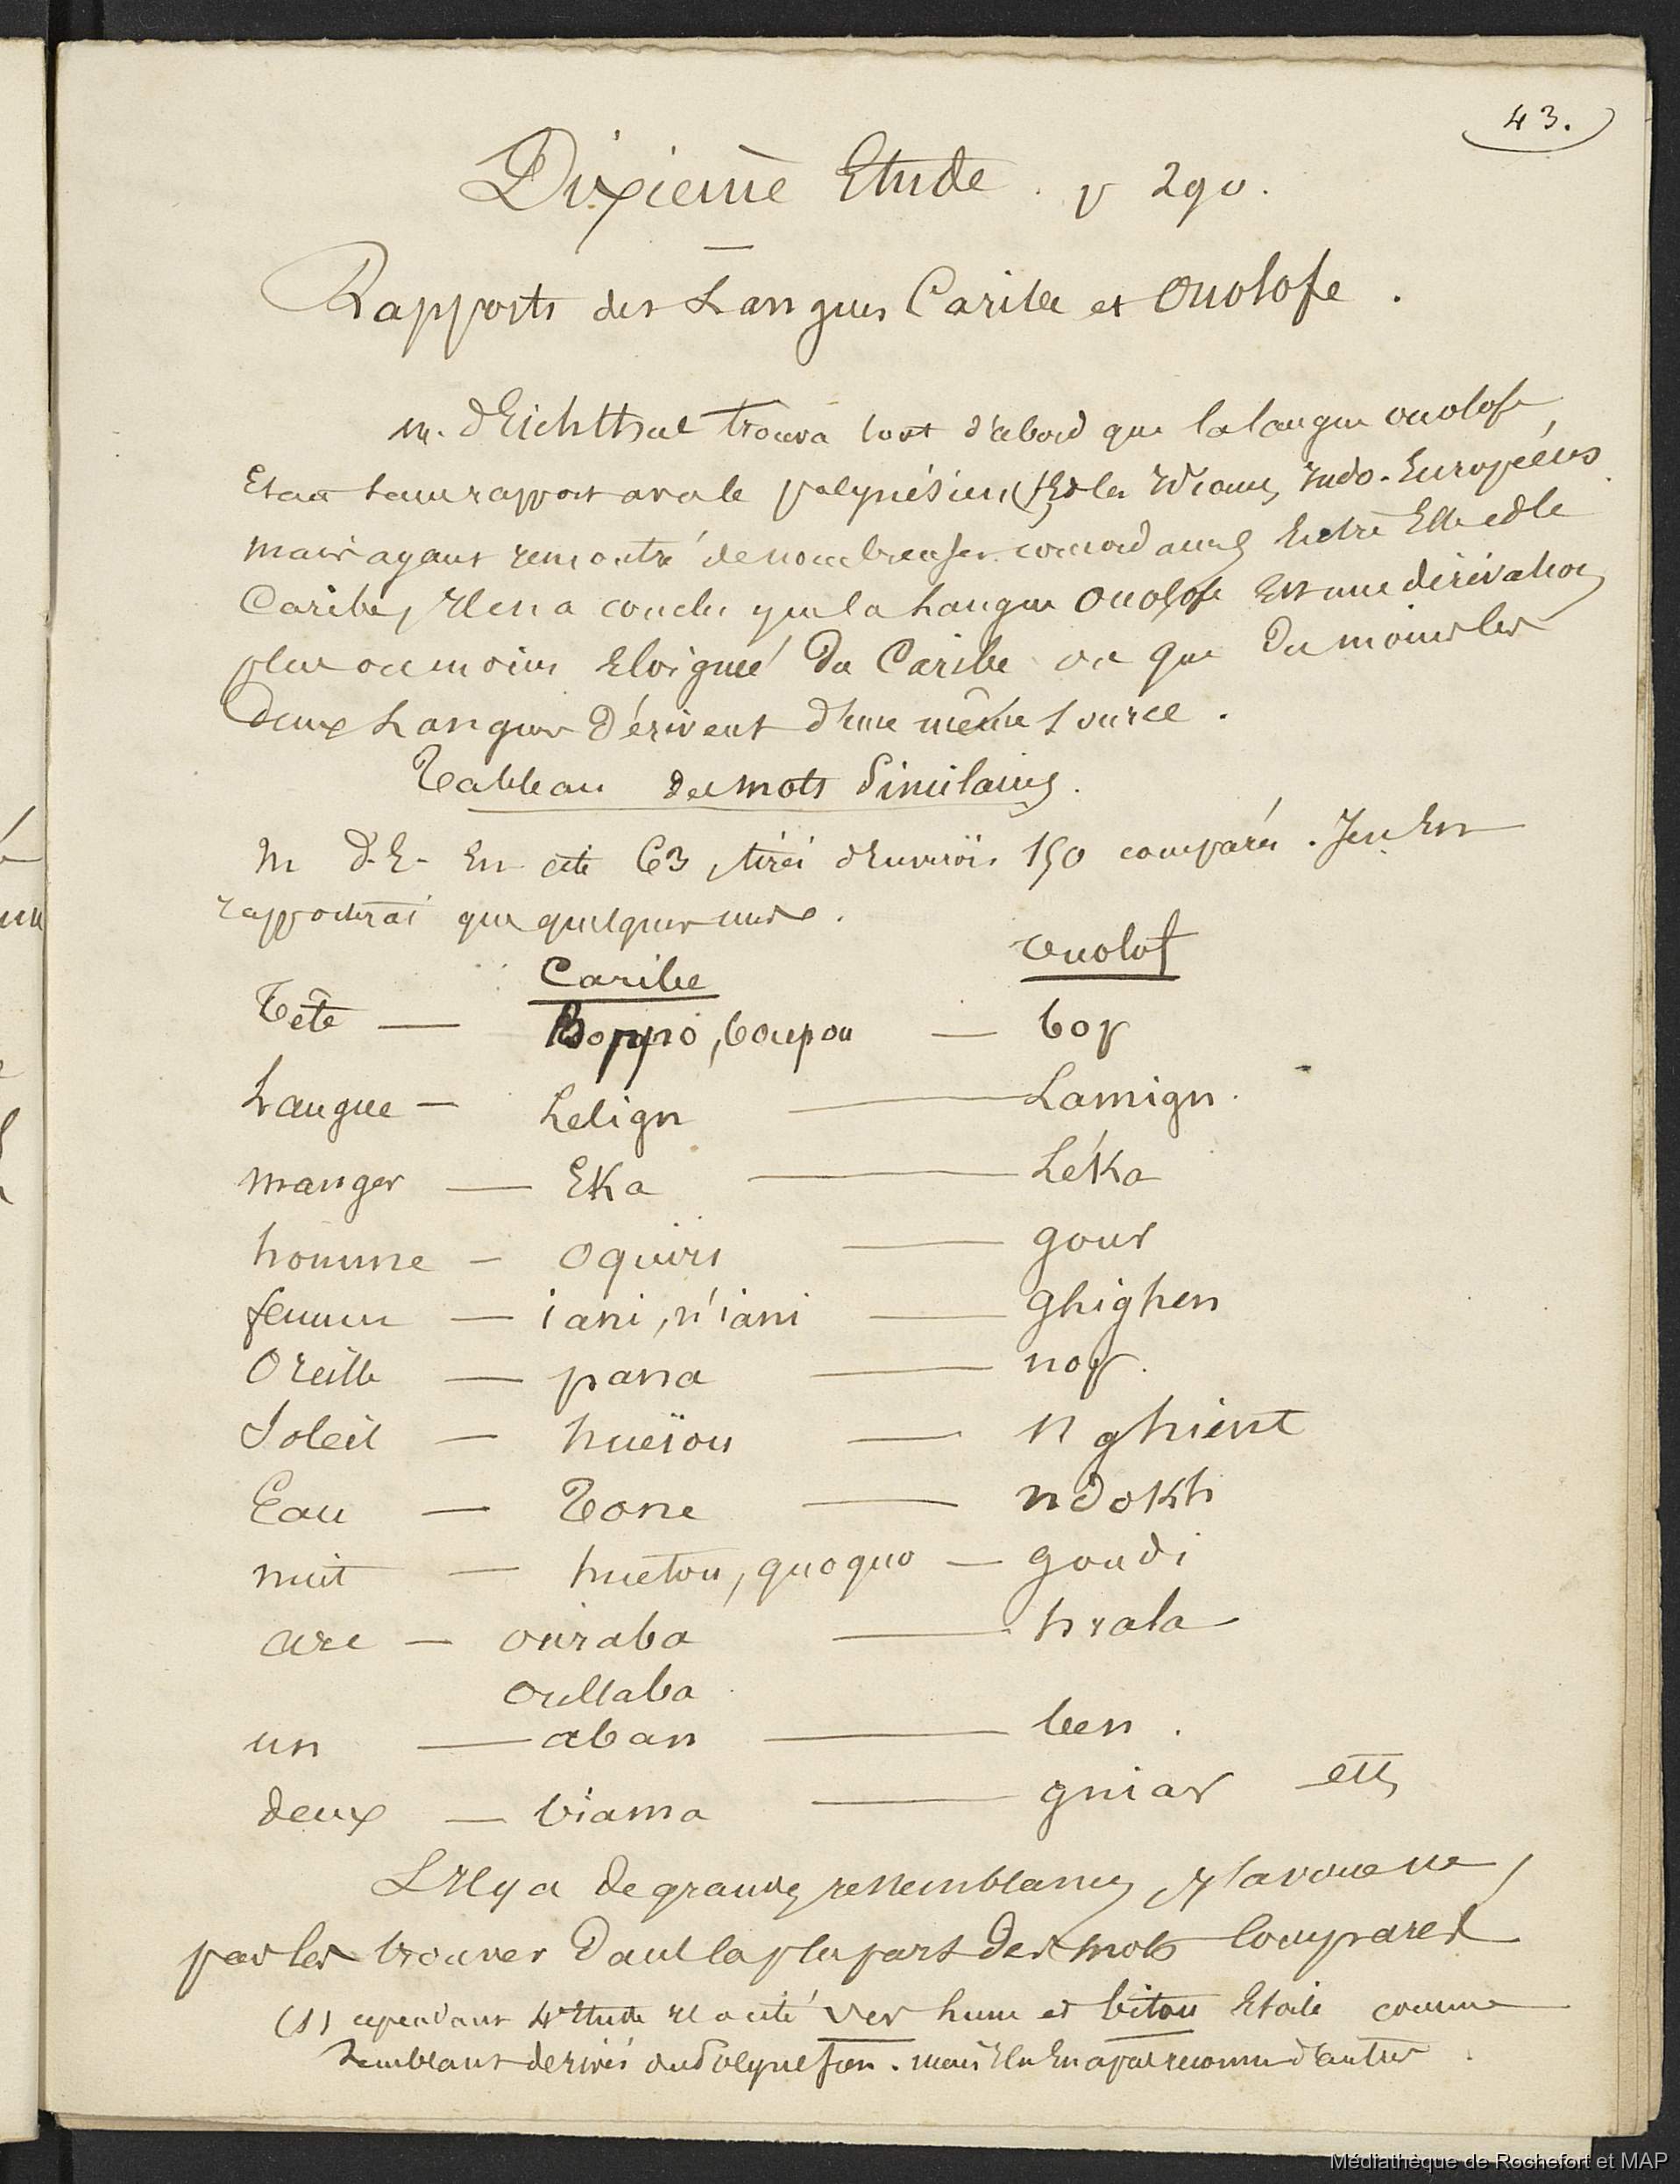 43.
Dixième Etude. p 290.
Rapports des Langues Caribe et Ouolofe.
M. d'Eichthal trouva tout d'abord que la langue ouolofe,
Etait sans rapport avec le polynésien (1) Et les Idiomes Indo-Européens.
Mais ayant rencontré de nombreuses concordances Entre Elle et le
Caribe, Il en a conclu que la Langue Ouolofe Est une dérivation
plus ou moins Eloignée du Caribe ou que du moins les
deux Langues dérivent d'une même source.
Tableau des mots Similaires.
M d.E. En cite 63, tirés d'Environ 150 comparés. Je n'En
rapporterai que quelques uns.
Caribe
ouolof
Tête — Boppo, boupou — bop
Langue — Lelign — Lamign.
manger — Eka — Léka
homme — oquiri — gour
femme — iani, n'iani — ghighen
Oreille — pana — nop.
Soleil — hueïou — nghient
Eau — Tone — ndokh
nuit — huetou, quoquo — goudi
arc — ouraba — hrala
oullaba
un — aban — ben.
deux — biama — gniar etc
S'Il y a de grandes ressemblances, J'avoue ne
pas les trouver dans la plupart des mots comparés
(1) cependant 4e Etude Il a cité ver lune et bitou Etoile comme
semblant dérivés du Polynésien. mais Il n'En a pas reconnu d'autres.
Médiathèque de Rochefort et MAP